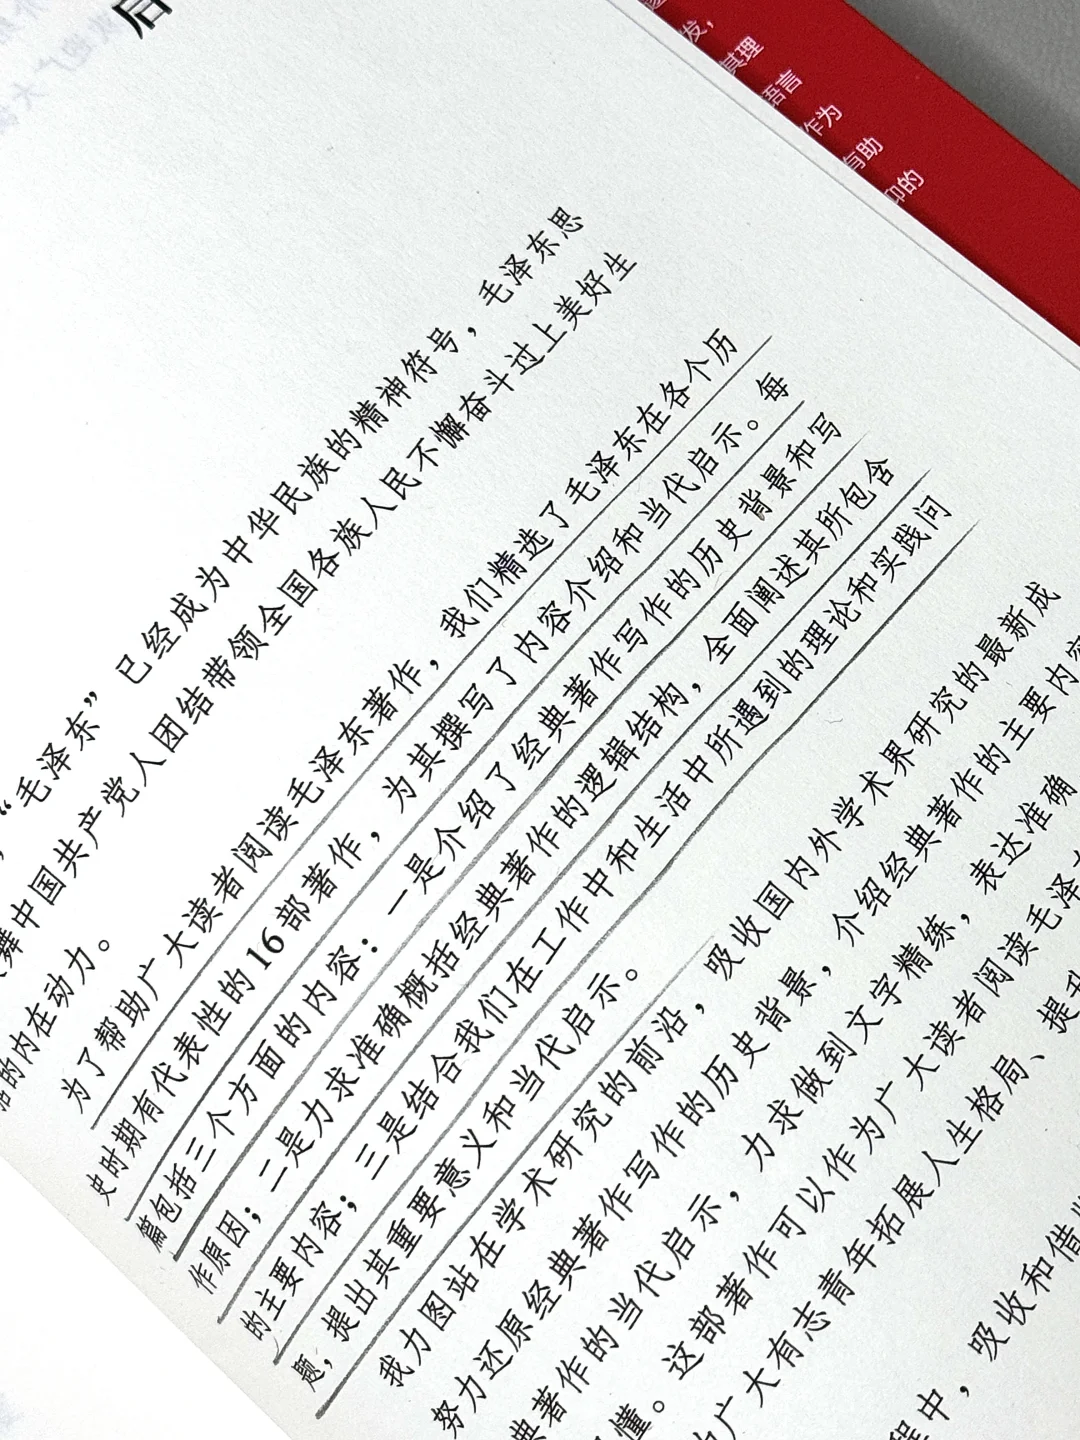 后
“毛泽东”已经成为中华民族的精神符号，毛泽东思
舞中国共产党人团结带领全国各族人民不懈奋斗过上美好生
的内在动力。
为了帮助广大读者阅读毛泽东著作，我们精选了毛泽东在各个历
史时期有代表性的16部著作，为其撰写了内容介绍和当代启示。每
篇包括三个方面的内容：一是介绍了经典著作写作的历史背景和写
作原因；二是力求准确概括经典著作的逻辑结构，全面阐述其所包含
的主要内容；三是结合我们在工作中和生活中所遇到的理论和实践问
题，提出其重要意义和当代启示。
我力图站在学术研究的前沿，吸收国内外学术界研究的最新成
努力还原经典著作写作的历史背景，介绍经典著作的主要内容
典著作的当代启示，力求做到文字精练，表达准确
懂。这部著作可以作为广大读者阅读毛泽
广大有志青年拓展人生格局、提升
程中，吸收和借
发，
其理
语言
作为
有助
印的